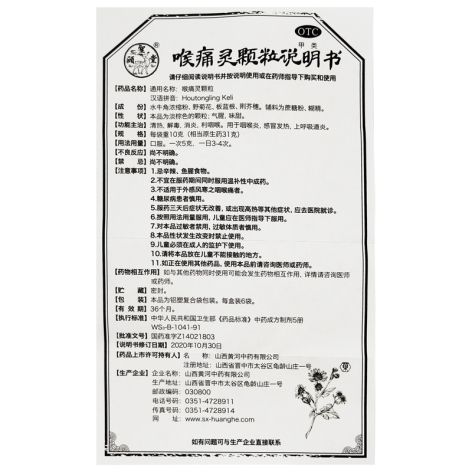 OTC
甲类
喉痛灵颗粒说明书
请仔细阅读说明书并按说明使用或在药师指导下购买和使用
【药品名称】通用名称:喉痛灵颗粒
汉语拼音:Houtongling Keli
【成 份】水牛角浓缩粉、野菊花、板蓝根、荆芥穗。辅料为蔗糖粉、糊精。
【性 状】本品为淡棕色的颗粒;气腥,味甜。
【功能主治】清热,解毒,消炎,利咽喉。用于咽喉炎,感冒发热,上呼吸道炎。
【规 格】每袋重10克(相当原生药31克)
【用法用量】口服。一次5克,一日3-4次。
【不良反应】尚不明确。
【禁 忌】尚不明确。
【注意事项】1.忌辛辣、鱼腥食物。
2.不宜在服药期间同时服用温补性中成药。
3.不适用于外感风寒之咽喉痛者。
4.糖尿病患者慎用。
5.服药三天后症状无改善,或出现高热等其他症状,应去医院就诊。
6.按照用法用量服用,儿童应在医师指导下服用。
7.对本品过敏者禁用,过敏体质者慎用。
8.本品性状发生改变时禁止使用。
9.儿童必须在成人的监护下使用。
10.请将本品放在儿童不能接触的地方。
11.如正在使用其他药品,使用本品前请咨询医师或药师。
【药物相互作用】如与其他药物同时使用可能会发生药物相互作用,详情请咨询医师
或药师。
【贮 藏】密封。
【包 装】本品为铝塑复合袋包装。每盒装6袋。
【有 效 期】36个月。
【执行标准】中华人民共和国卫生部《药品标准》中药成方制剂5册
WS₃-B-1041-91
【批准文号】国药准字Z14021803
【说明书修订日期】2020年10月30日
【药品上市许可持有人】名 称:山西黄河中药有限公司
注册地址:山西省晋中市太谷区龟龄山庄一号
【生产企业】企业名称:山西黄河中药有限公司
生产地址:山西省晋中市太谷区龟龄山庄一号
邮政编码:030800
电话号码:0351-4728911
传真号码:0351-4728914
网 址:www.sx-huanghe.com
如有问题可与生产企业直接联系